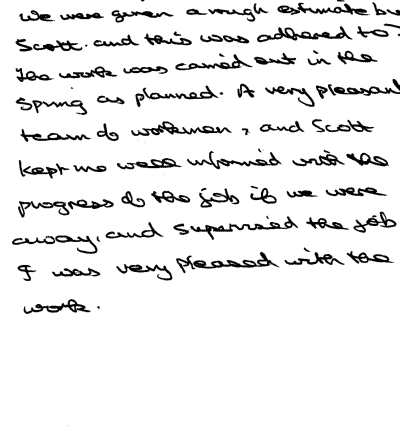 We were given a rough estimate by
Scott. and this was adhered to?
The work was carried out in the
Spring as planned. A very pleasant
team of workmen, and Scott
kept me well informed with the
progress of the job if we were
away, and supervised the job
I was very pleased with the
work.